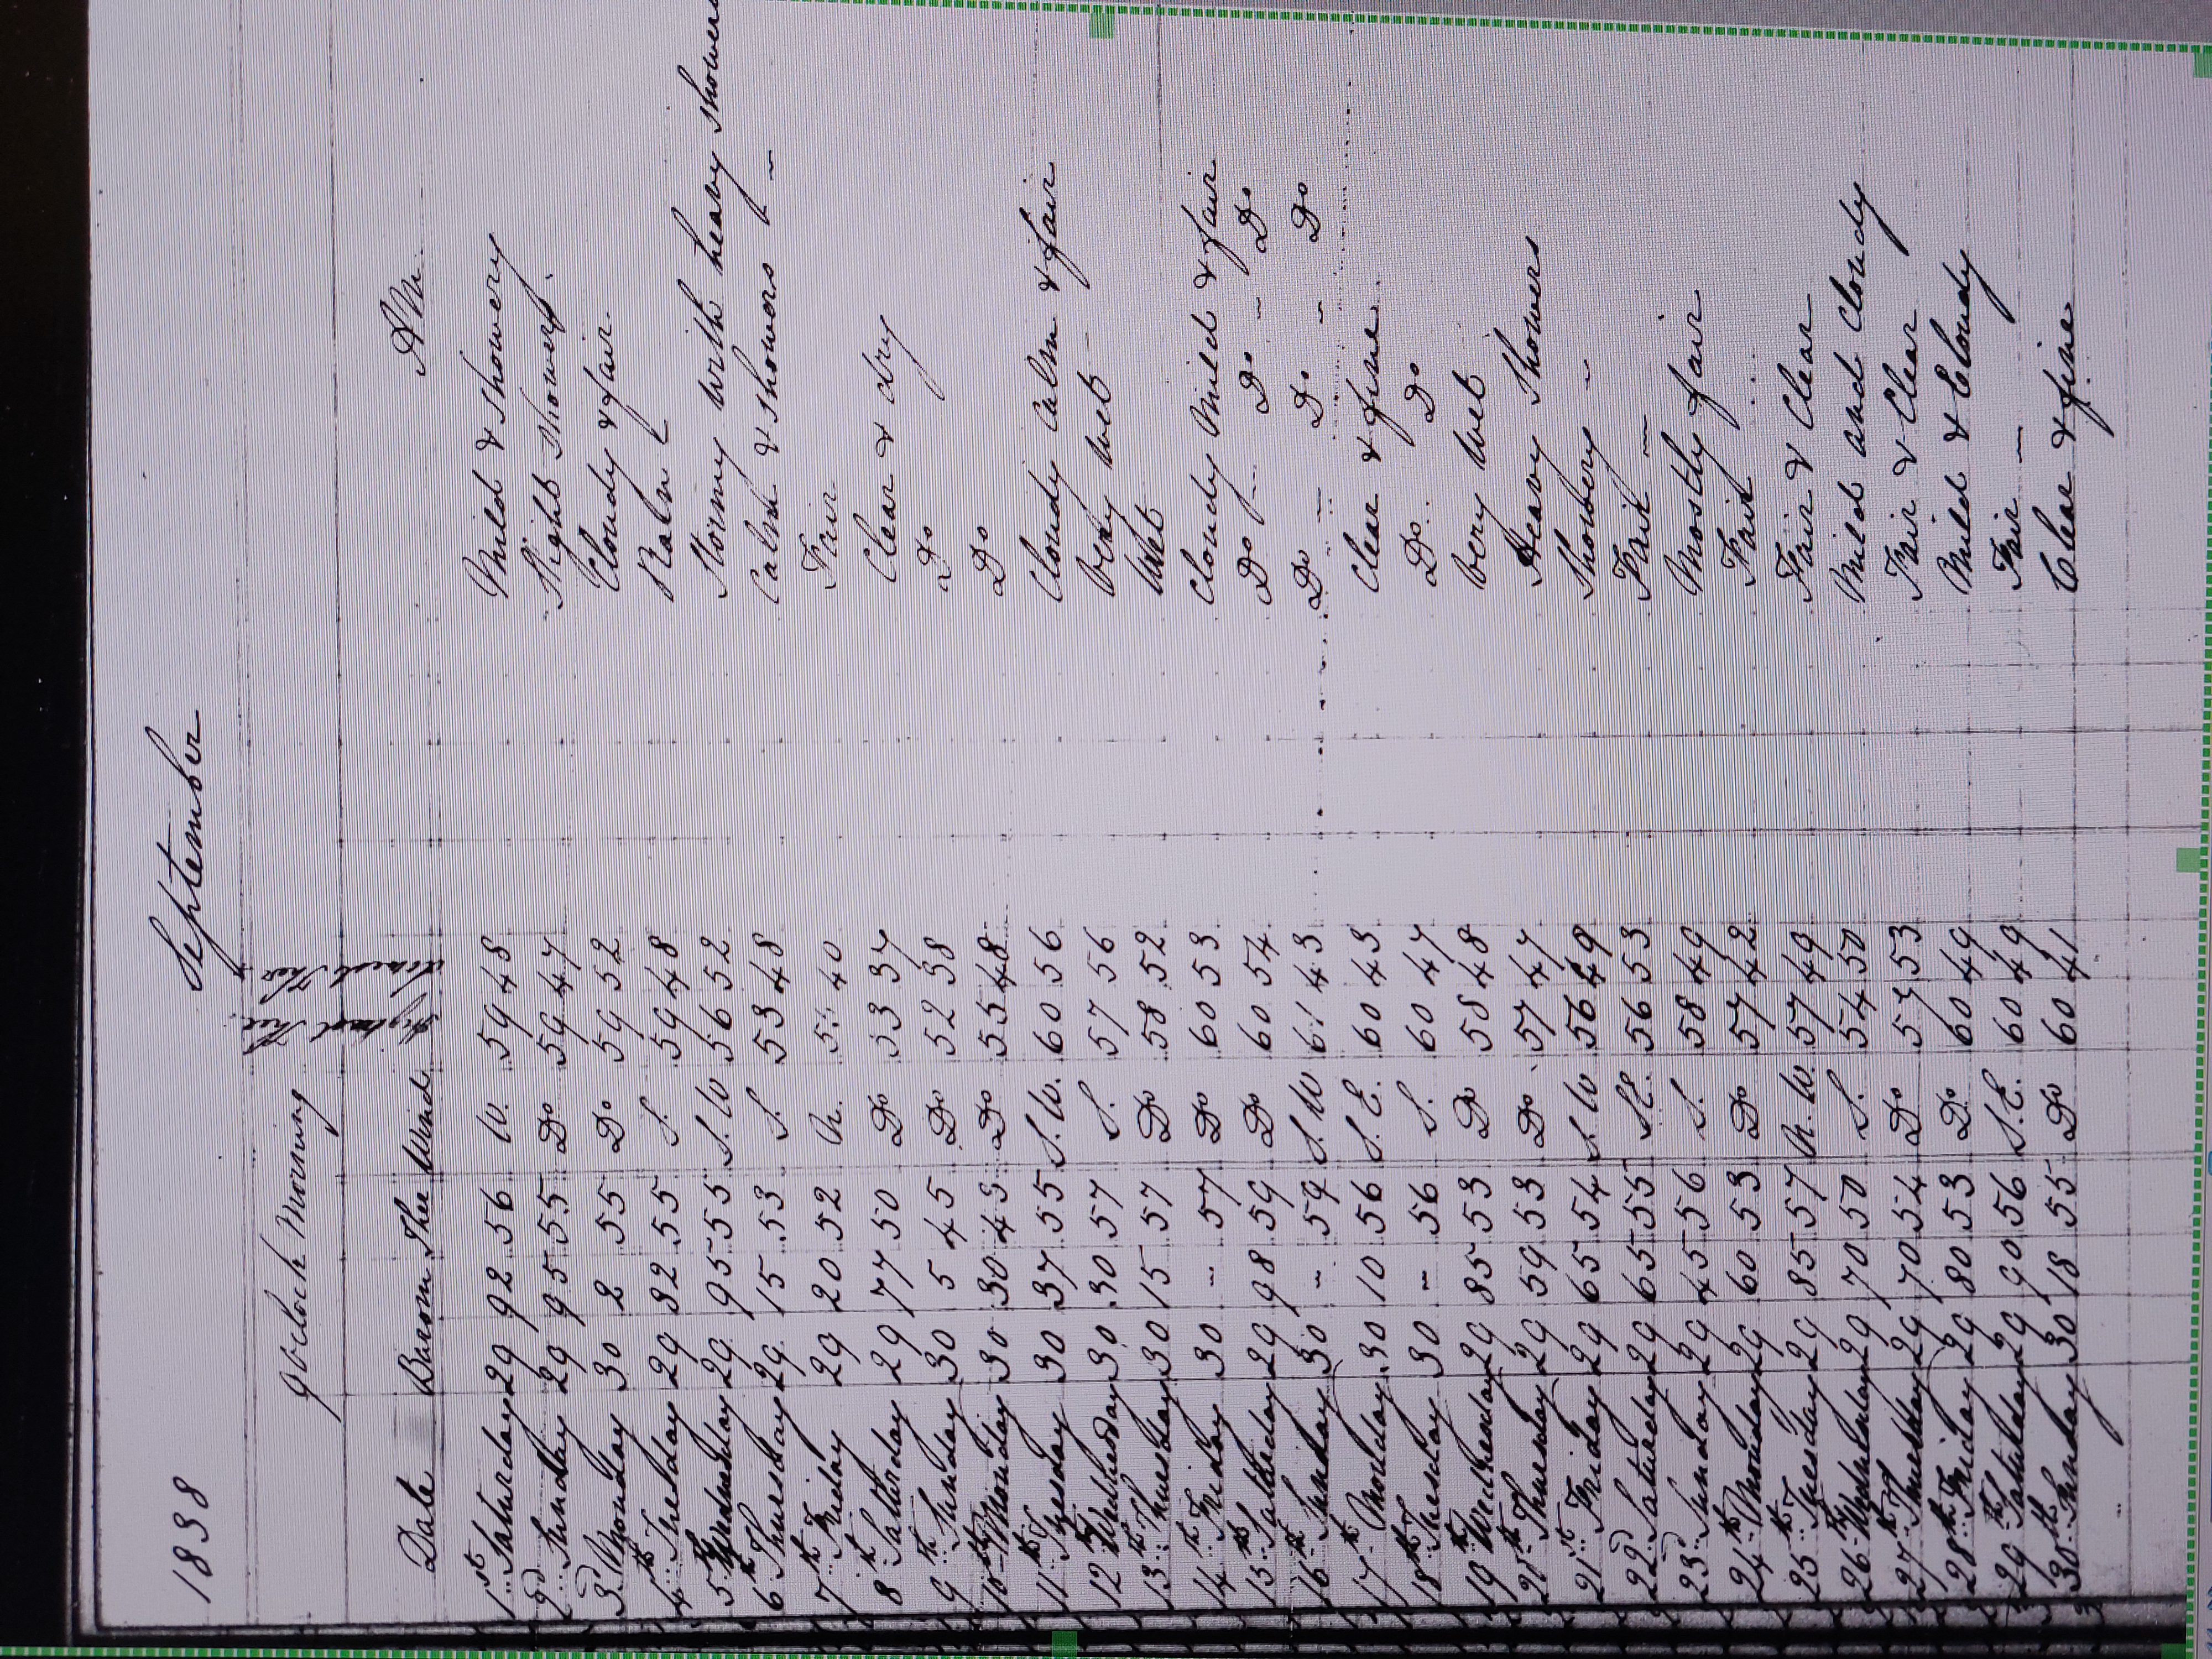 1838 September
9 oclock Morning
Highest Ther.
Lowest Ther.
Date Barom Ther Wind A.M.
1st Saturday 29 92 56 W. 59 48 Mild & Showery
2d Sunday 29 95 55 Do 59 47 Slight Showers.
3d Monday 30 2 55 Do 59 52 Cloudy & fair.
4th Tuesday 29 82 55 S. 59 48 Rain
5th Wednesday 29 95 55 S.W 56 52 Stormy with heavy Showers
6th Thursday 29 15 53 S. 53 48 Calm & Showers - -
7th Friday 29 20 52 N. 40 Fair
8th Saturday 29 77 50 Do 53 37 Clear & dry
9th Sunday 30 5 45 Do 52 38 Do
10th Monday 30 30 43 Do 55 48 Do
11th Tuesday 30 37 55 S.W. 60 56 Cloudy Calm & fair
12th Wednesday 30 30 57 S. 57 56 Very Wet
13th Thursday 30 15 57 Do 58 52 Wet
14th Friday 30 - 57 Do 60 53 Cloudy Mild & fair
15th Saturday 29 98 59 Do 60 54 Do - Do - Do
16th Sunday 30 - 59 S.W 61 43 Do - Do - Do
17th Monday 30 10 56 S.E. 60 43 Clear & fine
18th Tuesday 30 - 56 S. 60 47 Do Do
19th Wednesday 29 85 53 Do 58 48 Very Wet
20th Thursday 29 59 53 Do 57 47 Heavy Showers
21st Friday 29 65 54 S.W 56 49 Showery -
22d Saturday 29 65 55 S.E. 56 53 Fair -
23d Sunday 29 45 56 S. 58 49 Mostly fair
24th Monday 29 60 53 Do 57 42 Fair
25th Tuesday 29 85 57 N.W. 57 49 Fair & Clear
26th Wednesday 29 70 50 S. 54 50 Mild and Cloudy
27th Thursday 29 70 54 Do 57 53 Fair & Clear
28th Friday 29 80 53 Do 60 49 Mild & Cloudy
29th Saturday 29 90 56 S.E. 60 49 Fair -
30th Sunday 30 18 55 Do 60 41 Clear & fine